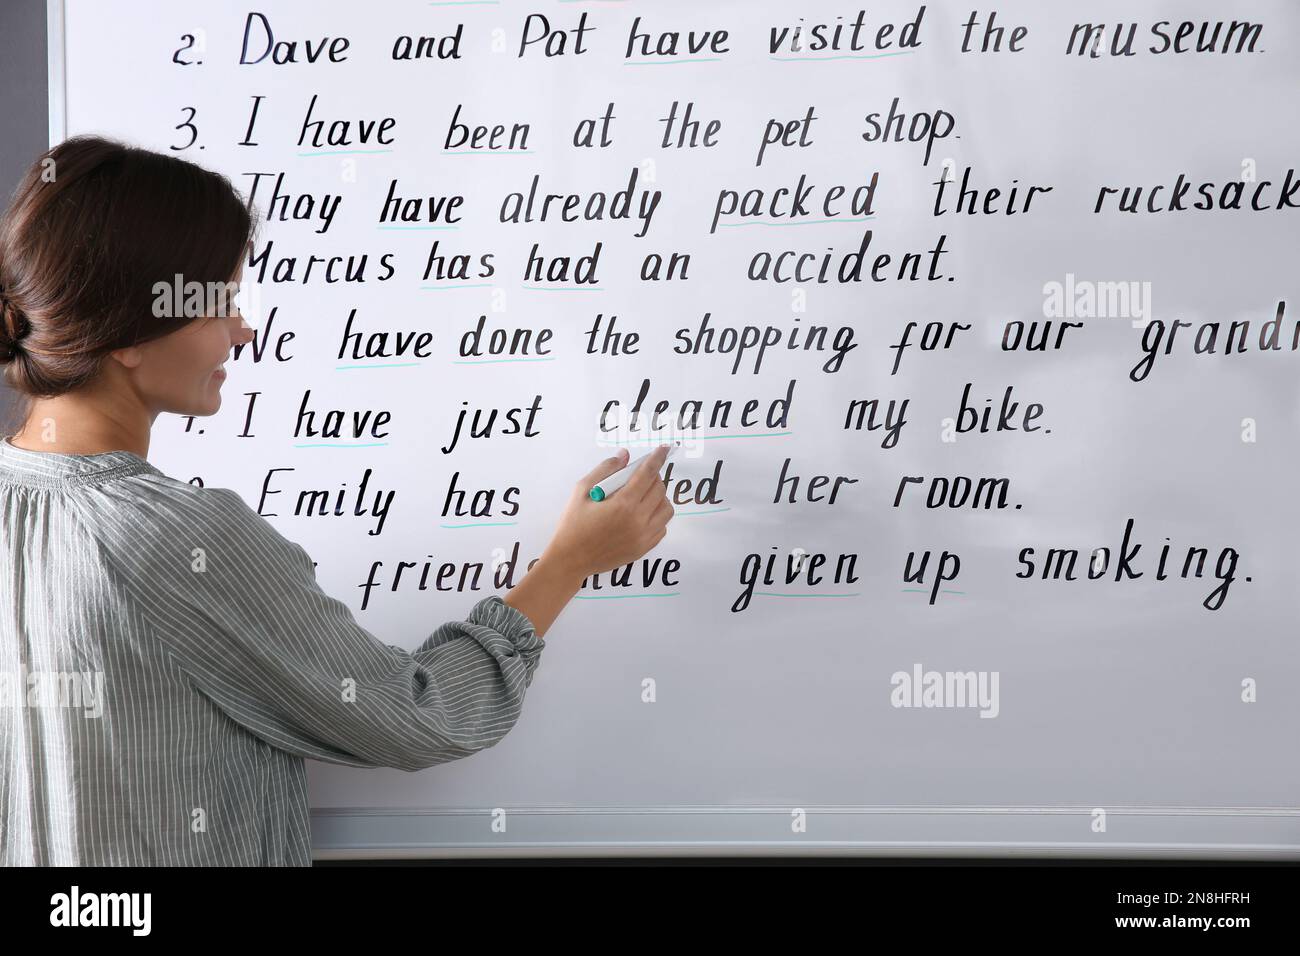 2. Dave and Pat have visited the museum.
3. I have been at the pet shop.
Thay have already packed their rucksack
Marcus has had an accident.
We have done the shopping for our
I have just cleaned my bike.
Emily has her room.
friends have given up smoking.
alamy
Image ID: 2N8HFRH
www.alamy.com